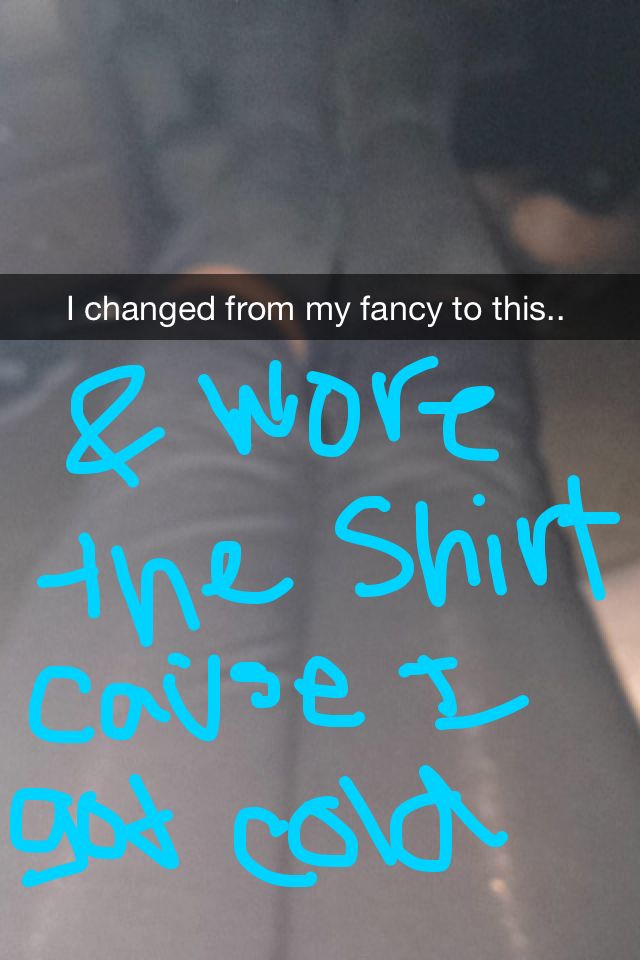 I changed from my fancy to this..
& wore
the Shirt
cause I
got cold